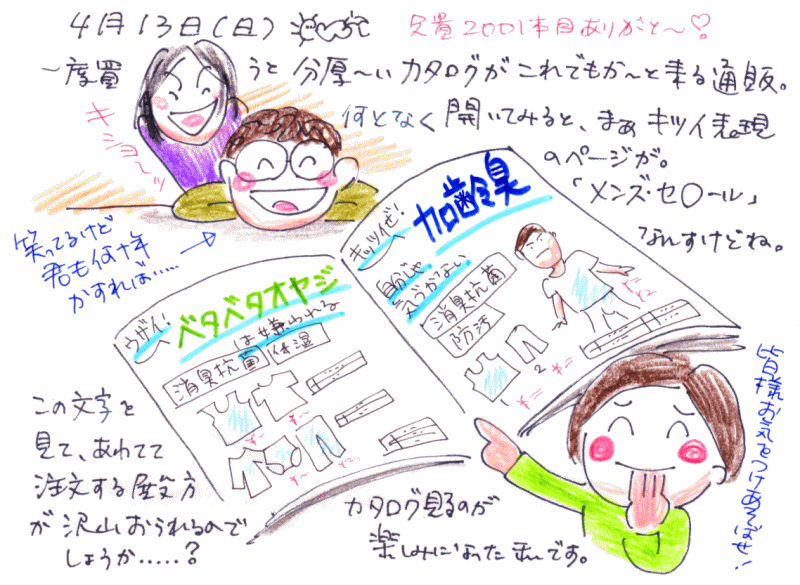 4月13日(日)
2001本目ありがと～♡
一度買うと分厚～いカタログがこれでもか～と来る通販。
キショ～ッ
何となく開いてみると、まぁキツイ表現
のページが。
「メンズ・セ〇ール」
なんすけどね。
笑ってるけど
君も何十年
かすれば……
キッツイぜ!
加齢臭
自分じゃ
気づかない
消臭抗菌
防汚
ウザい!
ベタベタオヤジ
は嫌われる
消臭抗菌
この文字を
見て、あわてて
注文する殿方
が沢山おられるので
しょうか.....?
カタログ見るのが
楽しみになった私です。
皆様お気をつけあそばせ!